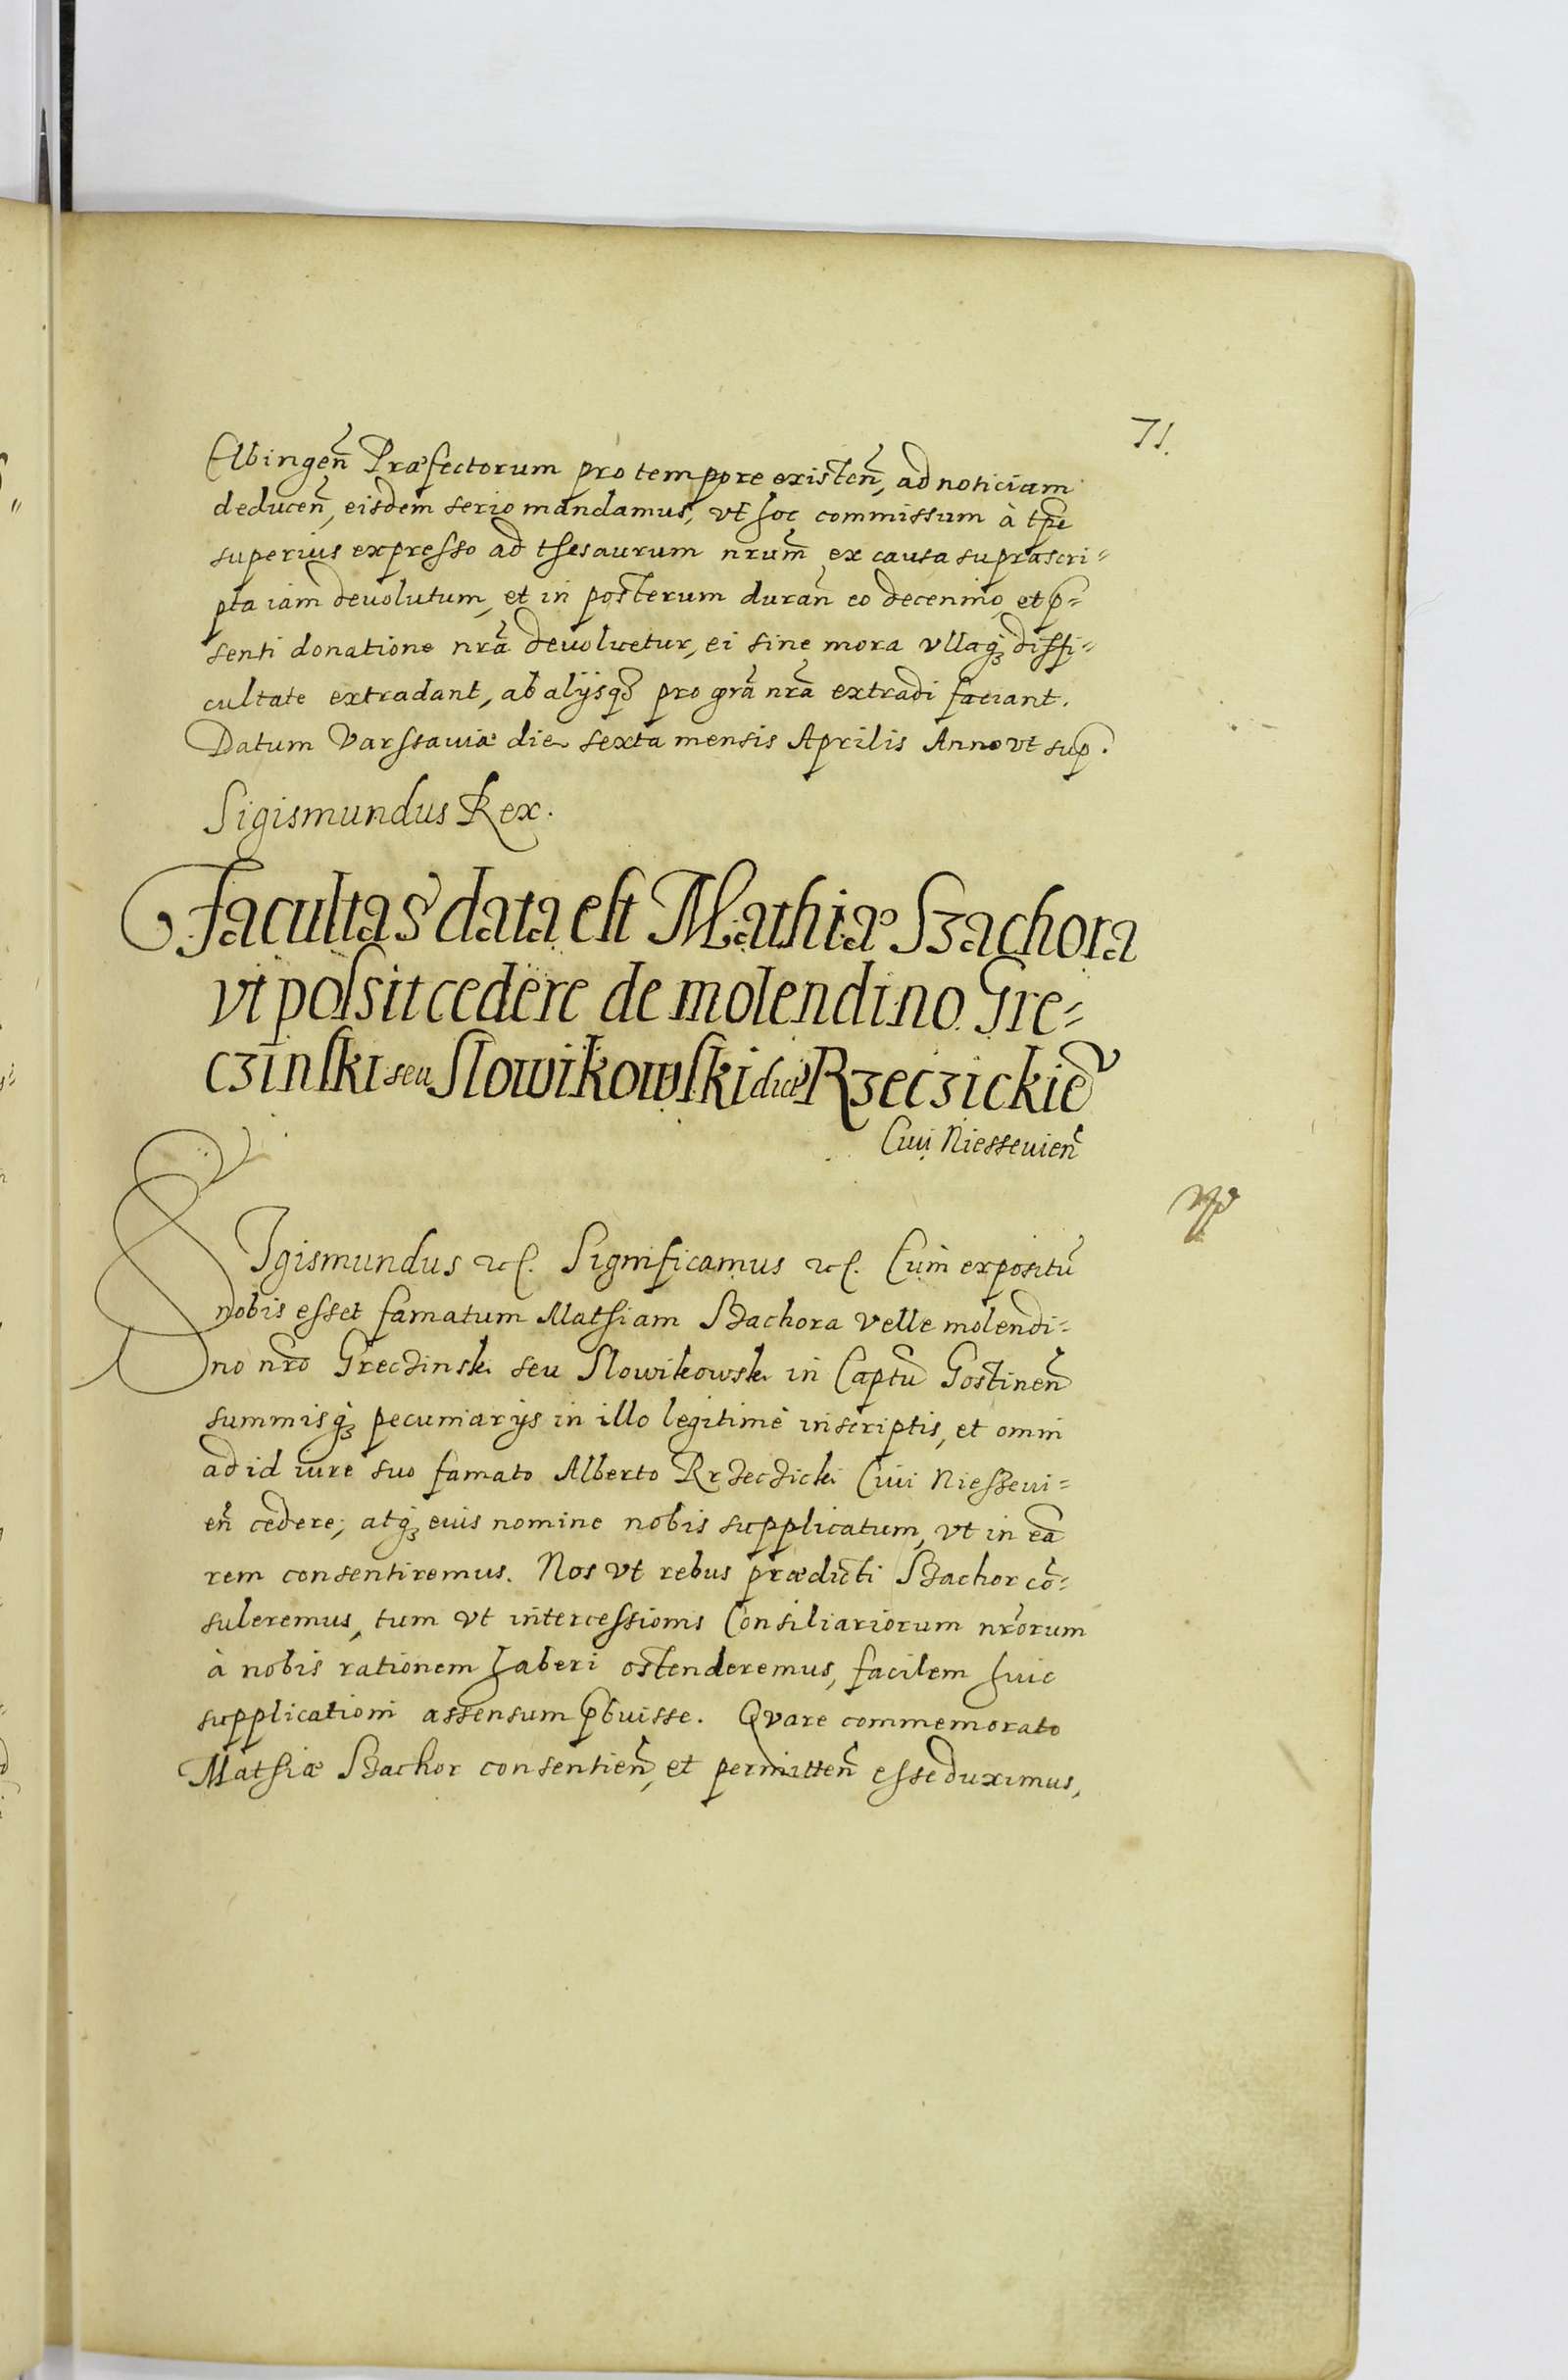 71.
Elbingen̄ Præfectorum pro tempore existen̄, ad noticiam
deducen̄, eisdem serio mandamus, vt hoc commissum à tp̄e
superius expresso ad thesaurum nrum̄ ex causa suprascri=
pta iam deuolutum, et in posterum duran̄ eo decennio, et p̄=
senti donatione nrā deuoluetur, ei sine mora vllaq₃ diffi=
cultate extradant, ab alijsq₃ pro grā nrā extradi faciant.
Datum Varssauiæ die sexta mensis Aprilis Anno vt sup.
Sigismundus Rex.
Facultas data est Mathiæ Szachora
vt possit cedere de molendino Gre=
czinski seu Slowikowski dicẗ Rzeczickie
Ciui Niesseuien̄
SIgismundus etc. Significamus etc. Cum expositū
nobis esset famatum Mathiam Szachora velle molendi=
no nr̄o Greczinski seu Slowikowski in Captū Gostinen̄
summisq₃ pecuniarijs in illo legitimè inscriptis, et omni
ad id iure suo famato Alberto Rzeczicki Ciui Nieszeui=
en̄ cedere; atq₃ eius nomine nobis supplicatum, vt in eā
rem consentiremus. Nos vt rebus prædicti Szachor cō=
suleremus, tum vt intercessionis Consiliariorum nr̄orum
à nobis rationem haberi ostenderemus, facilem huic
supplicationi assensum p̄buisse. Qvare commemorato
Mathiæ Szachor consentien̄, et permitten̄ esse duximus,